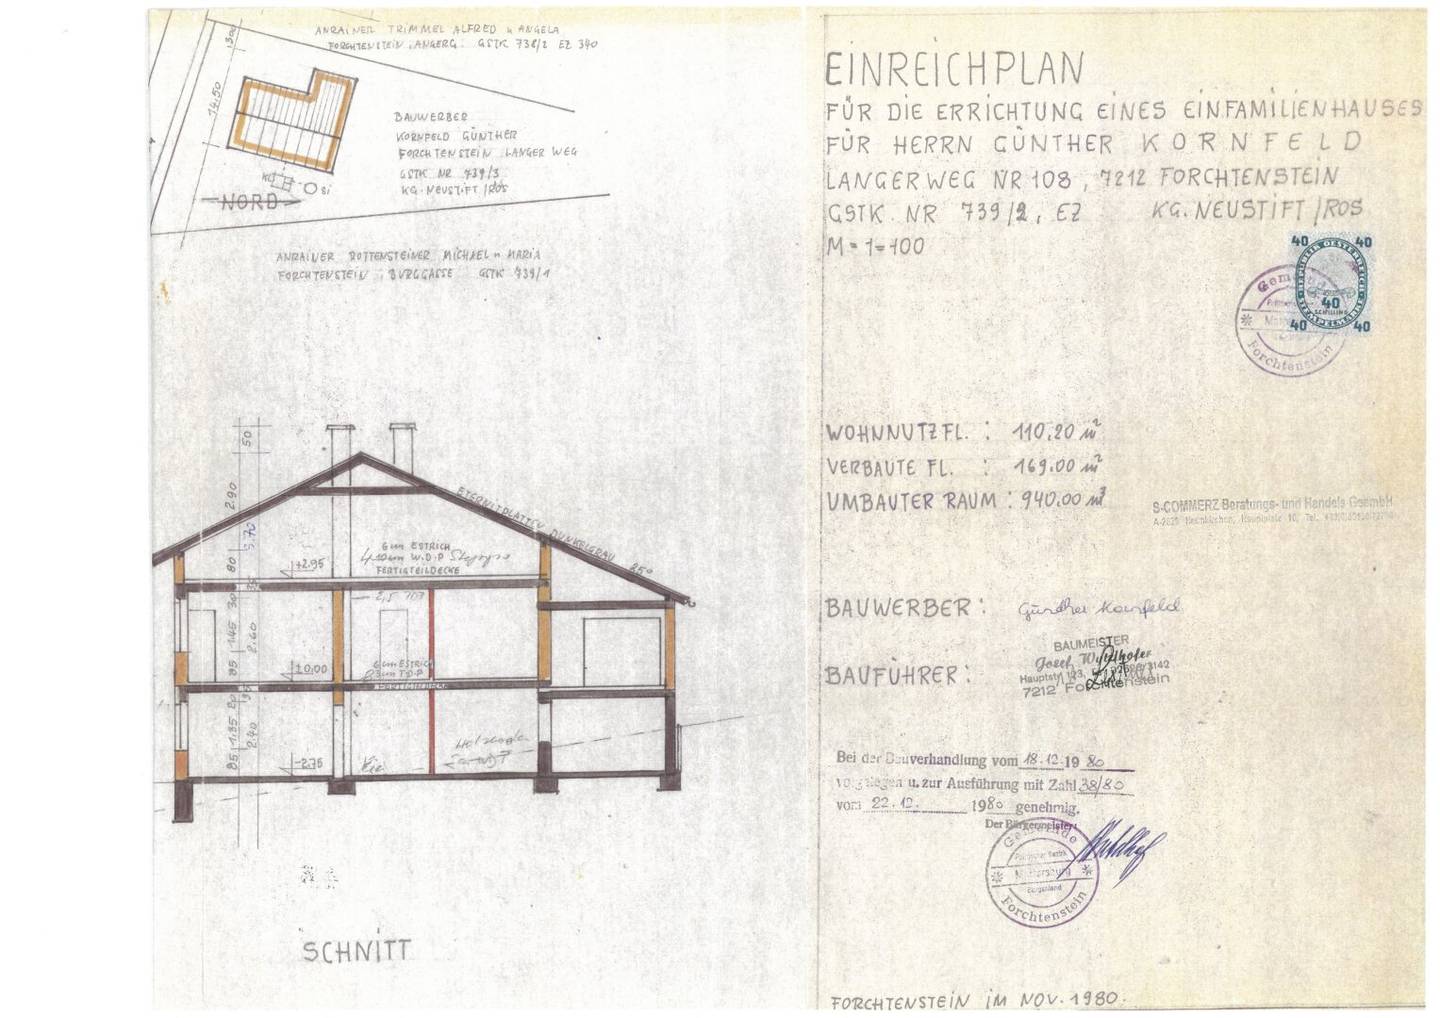 ANRAINER TRIMMEL ALFRED u ANGELA
FORCHTENSTEIN, ANGERG. GSTK 738/2 EZ 340
3.00
14.50
BAUWERBER
KORNFELD GÜNTHER
FORCHTENSTEIN LANGER WEG
GSTK NR 739/3
KG. NEUSTIFT /ROS
KG
Si
NORD
ANRAINER ROTTENSTEINER MICHAEL u MARIA
FORCHTENSTEIN, BURGGASSE GSTK 739/1
50
2.90
5.70
80
ETERNITPLATTEN DUNKELGRAU
25°
6 cm ESTRICH
W.D.P
FERTIGTEILDECKE
+2.95
30
35
1.45
2.60
85
±0.00
6 cm ESTRICH
T.D.P
20
30
1.35
2.40
85
-2.75
SCHNITT
EINREICHPLAN
FÜR DIE ERRICHTUNG EINES EINFAMILIENHAUSES
FÜR HERRN GÜNTHER KORNFELD
LANGER WEG NR 108, 7212 FORCHTENSTEIN
GSTK. NR 739/2, EZ KG. NEUSTIFT /ROS
M = 1=100
40 40
REPUBLIK OESTERREICH
40
SCHILLING
STEMPELMARKE
40 40
Forchtenstein
WOHNNUTZFL. : 110.20 m²
VERBAUTE FL. : 169.00 m²
UMBAUTER RAUM : 940.00 m³
S-COMMERZ Beratungs- und Handels GesmbH
BAUWERBER: Günther Kornfeld
BAUFÜHRER:
BAUMEISTER
Josef
Hauptstr. 123
7212 Forchtenstein
Bei der Bauverhandlung vom 18.12.1980
vorgelegen u. zur Ausführung mit Zahl 38/80
vom 22.12. 1980 genehmig.
Der Bürgermeister:
Gemeinde
Politischer Bezirk
Mattersburg
Burgenland
Forchtenstein
FORCHTENSTEIN IM NOV. 1980.